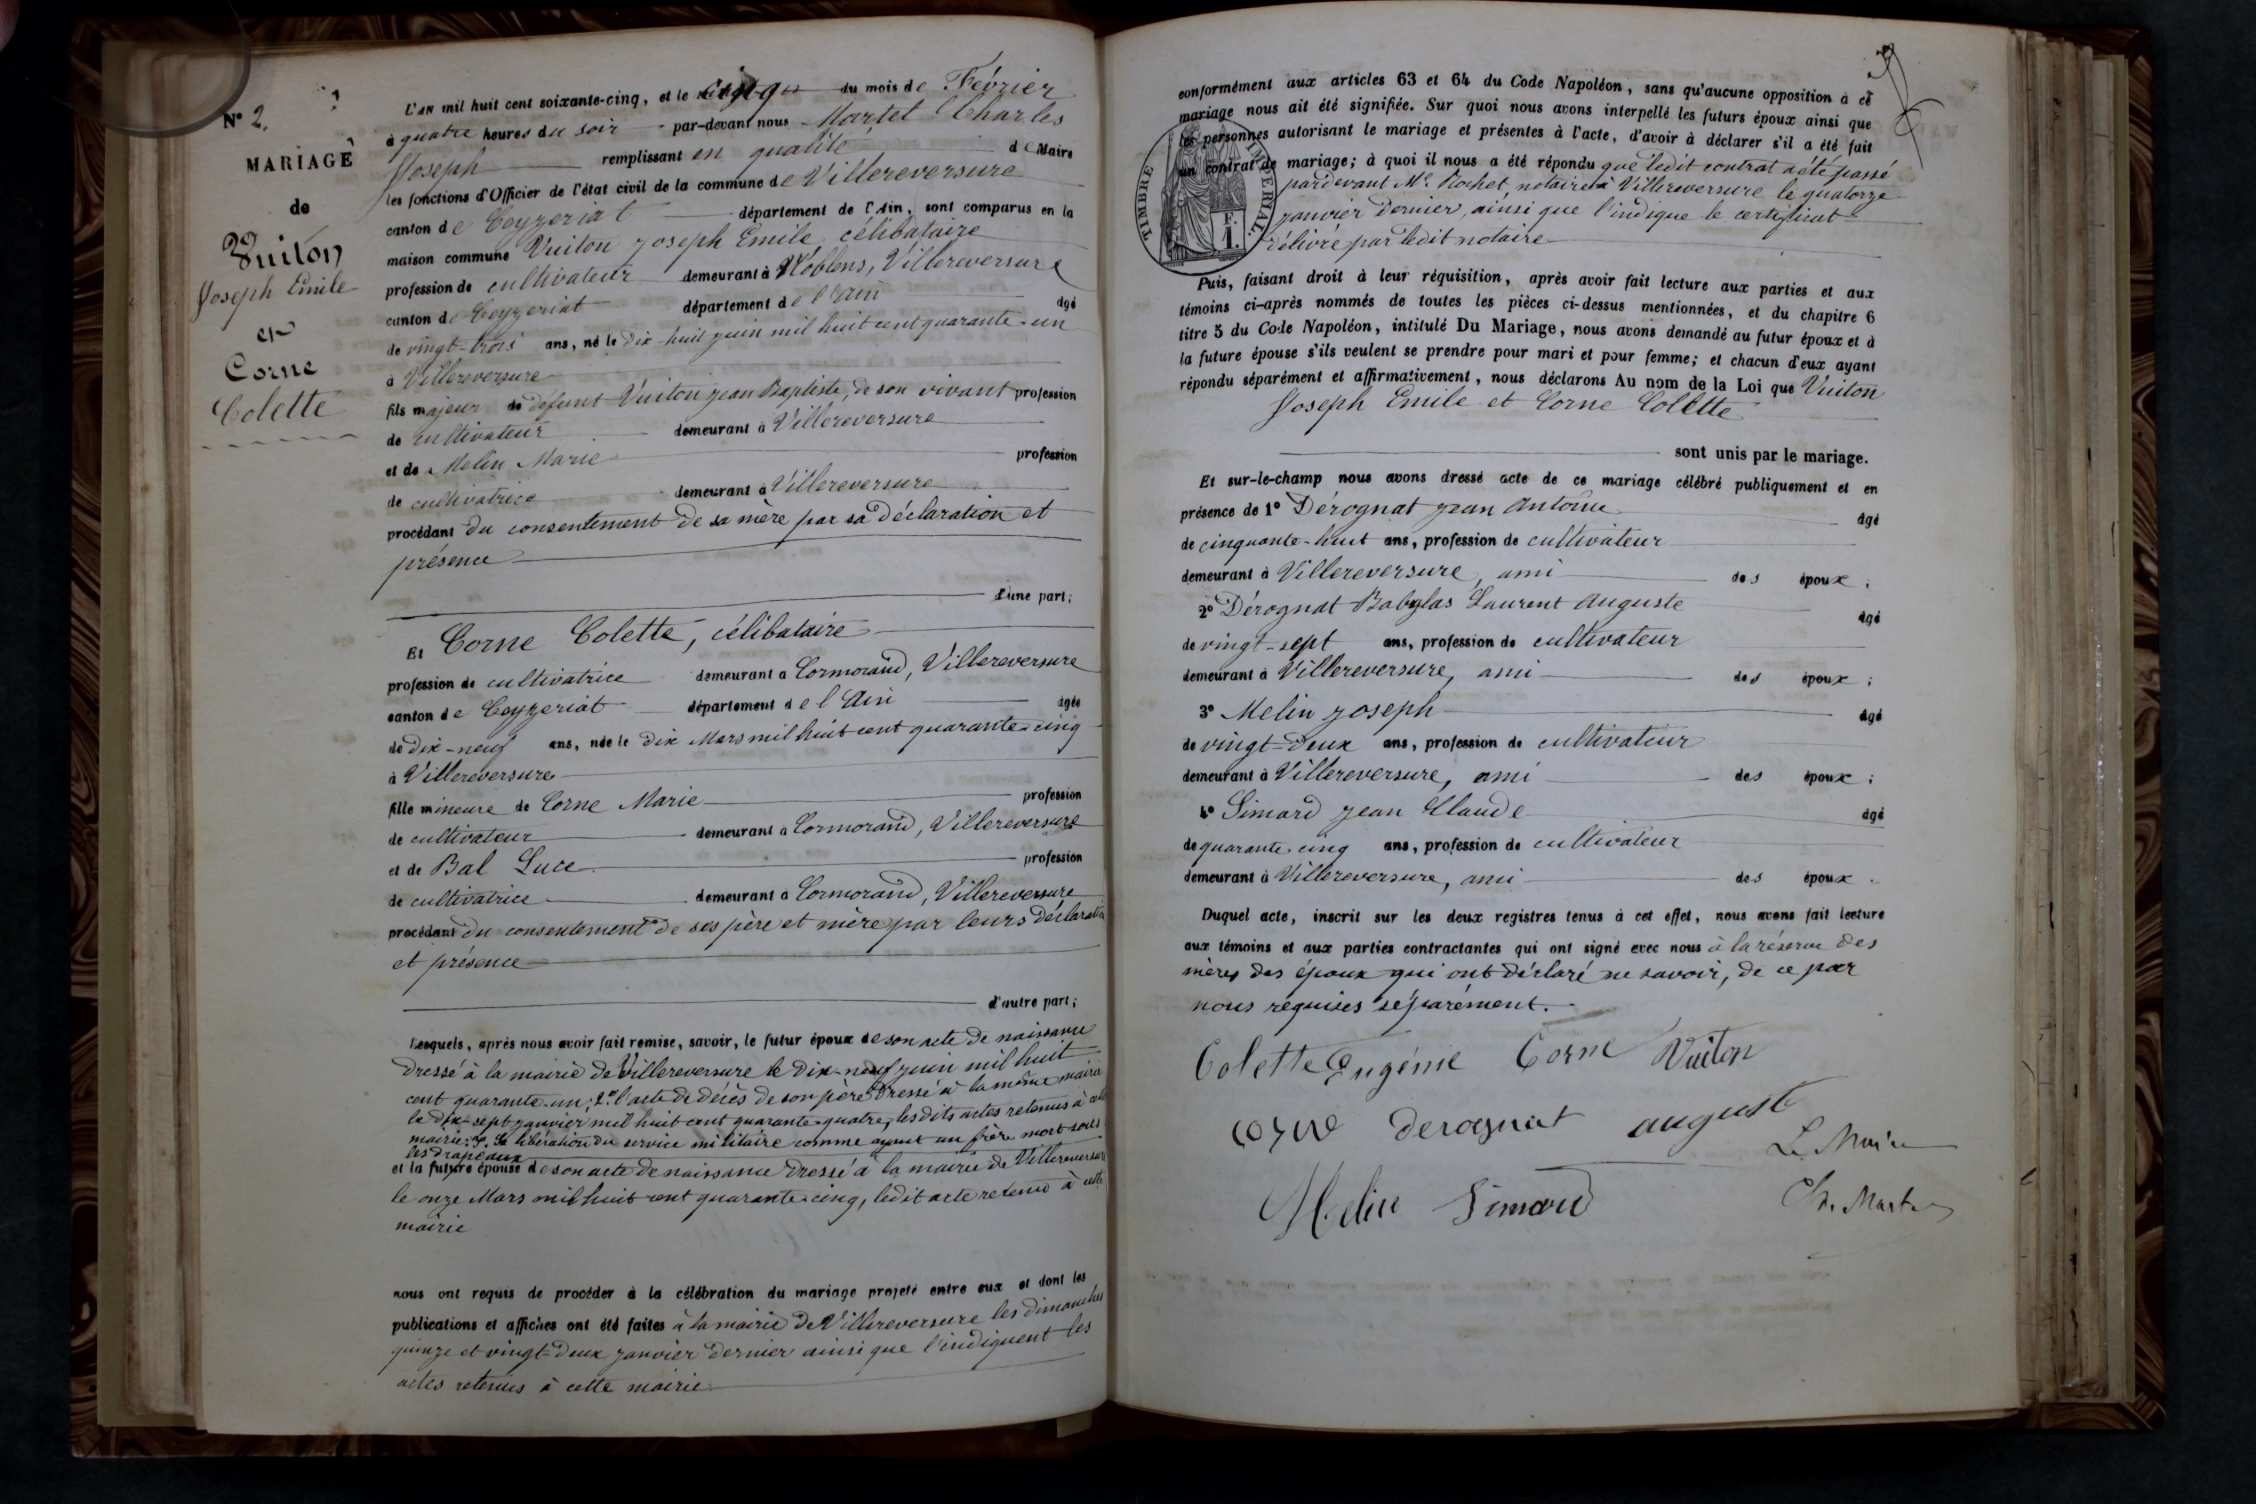 N° 2.
MARIAGE
de
Vuiton
Joseph Emile
et
Corne
Colette
L'AN mil huit cent soixante-cinq, et le cinq du mois de Février
à quatre heures du soir par-devant nous Martel Charles
Joseph remplissant en qualité de Maire
les fonctions d'Officier de l'état civil de la commune de Villereversure
canton de Ceyzeriat département de l'Ain, sont comparus en la
maison commune Vuiton Joseph Emile, célibataire
profession de cultivateur demeurant à Noblens, Villereversure
canton de Ceyzeriat département de l'Ain âgé
de vingt-trois ans, né le dix-huit juin mil huit cent quarante-un
à Villereversure
fils majeur de défunt Vuiton Jean Baptiste, de son vivant profession
de cultivateur demeurant à Villereversure
et de Melin Marie profession
de cultivatrice demeurant à Villereversure
procédant du consentement de sa mère par sa déclaration et
présence
d'une part;
Et Corne Colette, célibataire
profession de cultivatrice demeurant à Cormorand, Villereversure
canton de Ceyzeriat département de l'Ain âgée
de dix-neuf ans, née le dix Mars mil huit cent quarante-cinq
à Villereversure
fille mineure de Corne Marie profession
de cultivateur demeurant à Cormorand, Villereversure
et de Bal Luce profession
de cultivatrice demeurant à Cormorand, Villereversure
procédant du consentement de ses père et mère par leurs déclaration
et présence
d'autre part;
Lesquels, après nous avoir fait remise, savoir, le futur époux de son acte de naissance
dressé à la mairie de Villereversure le dix-neuf juin mil huit
cent quarante-un; 2° l'acte de décès de son père dressé à la même mairie
le dix-sept janvier mil huit cent quarante-quatre, lesdits actes retenus à cette
mairie; 3° sa libération du service militaire comme ayant un frère mort sous
les drapeaux
et la future épouse de son acte de naissance dressé à la mairie de Villereversure
le onze Mars mil huit cent quarante-cinq, ledit acte retenu à cette
mairie
nous ont requis de procéder à la célébration du mariage projeté entre eux et dont les
publications et affiches ont été faites à la mairie de Villereversure les dimanches
quinze et vingt-deux janvier dernier ainsi que l'indiquent les
actes retenus à cette mairie
conformément aux articles 63 et 64 du Code Napoléon, sans qu'aucune opposition à ce
mariage nous ait été signifiée. Sur quoi nous avons interpellé les futurs époux ainsi que
les personnes autorisant le mariage et présentes à l'acte, d'avoir à déclarer s'il a été fait
un contrat de mariage; à quoi il nous a été répondu que ledit contrat a été passé
pardevant Me Rochet, notaire à Villereversure le quatorze
janvier dernier, ainsi que l'indique le certificat
délivré par ledit notaire
TIMBRE IMPÉRIAL.
1 F.
Puis, faisant droit à leur réquisition, après avoir fait lecture aux parties et aux
témoins ci-après nommés de toutes les pièces ci-dessus mentionnées, et du chapitre 6
titre 5 du Code Napoléon, intitulé Du Mariage, nous avons demandé au futur époux et à
la future épouse s'ils veulent se prendre pour mari et pour femme; et chacun d'eux ayant
répondu séparément et affirmativement, nous déclarons Au nom de la Loi que Vuiton
Joseph Emile et Corne Colette
sont unis par le mariage.
Et sur-le-champ nous avons dressé acte de ce mariage célébré publiquement et en
présence de 1° Dérognat Jean Antoine âgé
de cinquante-huit ans, profession de cultivateur
demeurant à Villereversure, ami des époux;
2° Dérognat Babylas Laurent Auguste âgé
de vingt-sept ans, profession de cultivateur
demeurant à Villereversure, ami des époux;
3° Melin Joseph âgé
de vingt-deux ans, profession de cultivateur
demeurant à Villereversure, ami des époux;
4° Simard Jean Claude âgé
de quarante-cinq ans, profession de cultivateur
demeurant à Villereversure, ami des époux.
Duquel acte, inscrit sur les deux registres tenus à cet effet, nous avons fait lecture
aux témoins et aux parties contractantes qui ont signé avec nous à la réserve des
mères des époux qui ont déclaré ne savoir, de ce par
nous requises séparément.
Colette Eugénie Corne Vuiton
Corne derognat august
Le Maire
Melin Simard
Ch. Martel